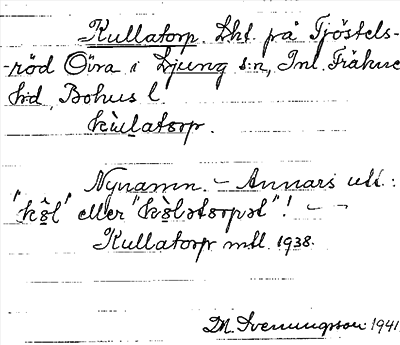 Kullatorp. Lht. på Tjöstels-
-röd Övra i Ljung s:n, Inl. Fräkne
hd, Bohus l.
kùlatɔrp.
Nynamn. – Annars utt.:
"kö̀l" eller "kö̀lətɔrpət"! –
Kullatorp mtl. 1938.
DM. Svenungsson 1941